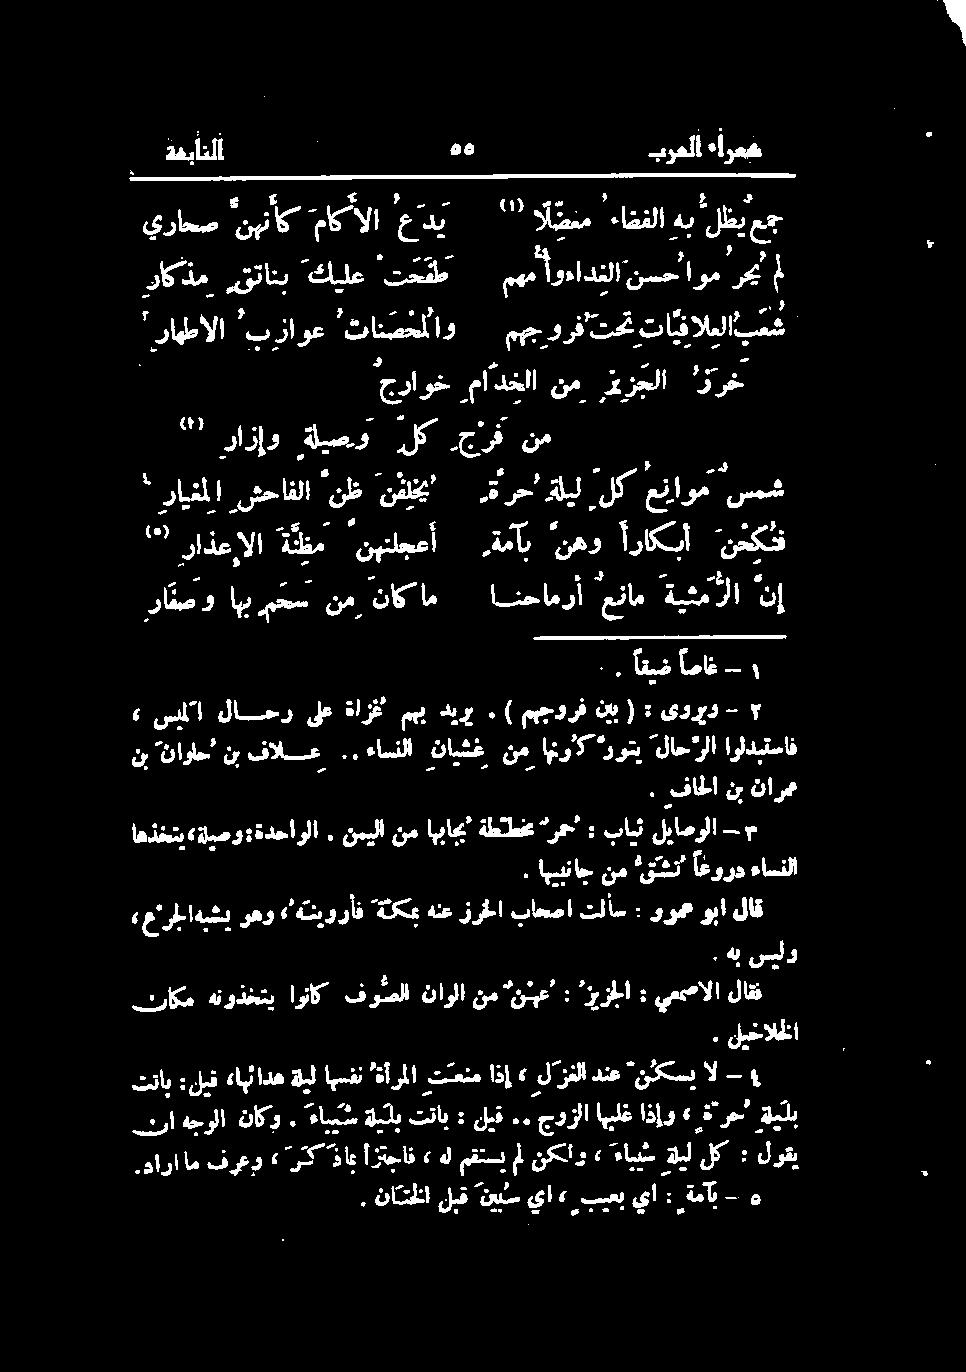 شعراء العرب ٥٥ النابغة
جمعٌ يظلُّ به الفضاءُ معضِّلًا (١) يَدَعُ الأكامَ كأنهنَّ صحاري
لم يُحرَموا حسنَ الغذاء وأُمهم طَفَحَتْ عليك بناتقٍ مذكارِ
شُعَبُ العلافيَّاتِ تحتَ فروجهم والمُحْصَناتُ عوازبُ الأطهارِ
خَرَزُ الجَزيزِ مِن الخِدامِ خوارجٌ
من فَرْجِ كلّ وَصيلةٍ وإزارِ (٢)
شمسٌ مَوانِعُ كلّ ليلةِ حُرَّةٍ يُخلِفْنَ ظنَّ الفاحشِ المغيارِ ٤
فنُكِحْنَ أبكاراً وهنَّ بآمةٍ أعجلنهنَّ مَظِنَّةَ الإعذارِ (٥)
إنَّ الرُّمَيثيةَ مانعٌ أرماحنا ما كانَ من سَحَمٍ بها وصَفَارِ
١ – غاصاً ضيقاً .
٢ – ويروى : ( بين فروجهم ) . يريد بهم غُزاة على رحال الميس ،
فاستبدلوا الرّحالَ يتورّكونها من غِشيانِ النساء .. عِلاف بن حلوانَ بن
عمران بن الحافِ .
٣ – الوصايل ثياب : حُمرٌ مخطّطة يُجاء بها من اليمن . الواحدة : وصيلة ، يتخذها
النساء دروعاً تُشَقُّ من جانبيها .
قال ابو عمرو : سألت اصحاب الخرز عنه بمكّةَ فأرَونيه ، وهو يشبه الجزْع ،
وليس به .
فقال الاصمعي : الجزيزُ : عُهنٌ من الوان الصُّوف كانوا يتخذونه مكان
الخلاخيل .
٤ – لا يسكُنَّ عند الغزلِ ، إذا منعتِ المرأةُ نفسها ليلة هدائها ، قيل : باتت
بليلةِ حُرَّةٍ ، وإذا غلبها الزوج .. قيل : باتت بليلة شَيباءَ . وكان الوجه ان
يقول : كل ليلةِ شَيباءَ ، ولكن لم يستقم له ، فاجتزأ بما ذَكَرَ ، وعرف ما اراد .
٥ – بآمةٍ : اي بعيبٍ ، اي سُبينَ قبل الختان .